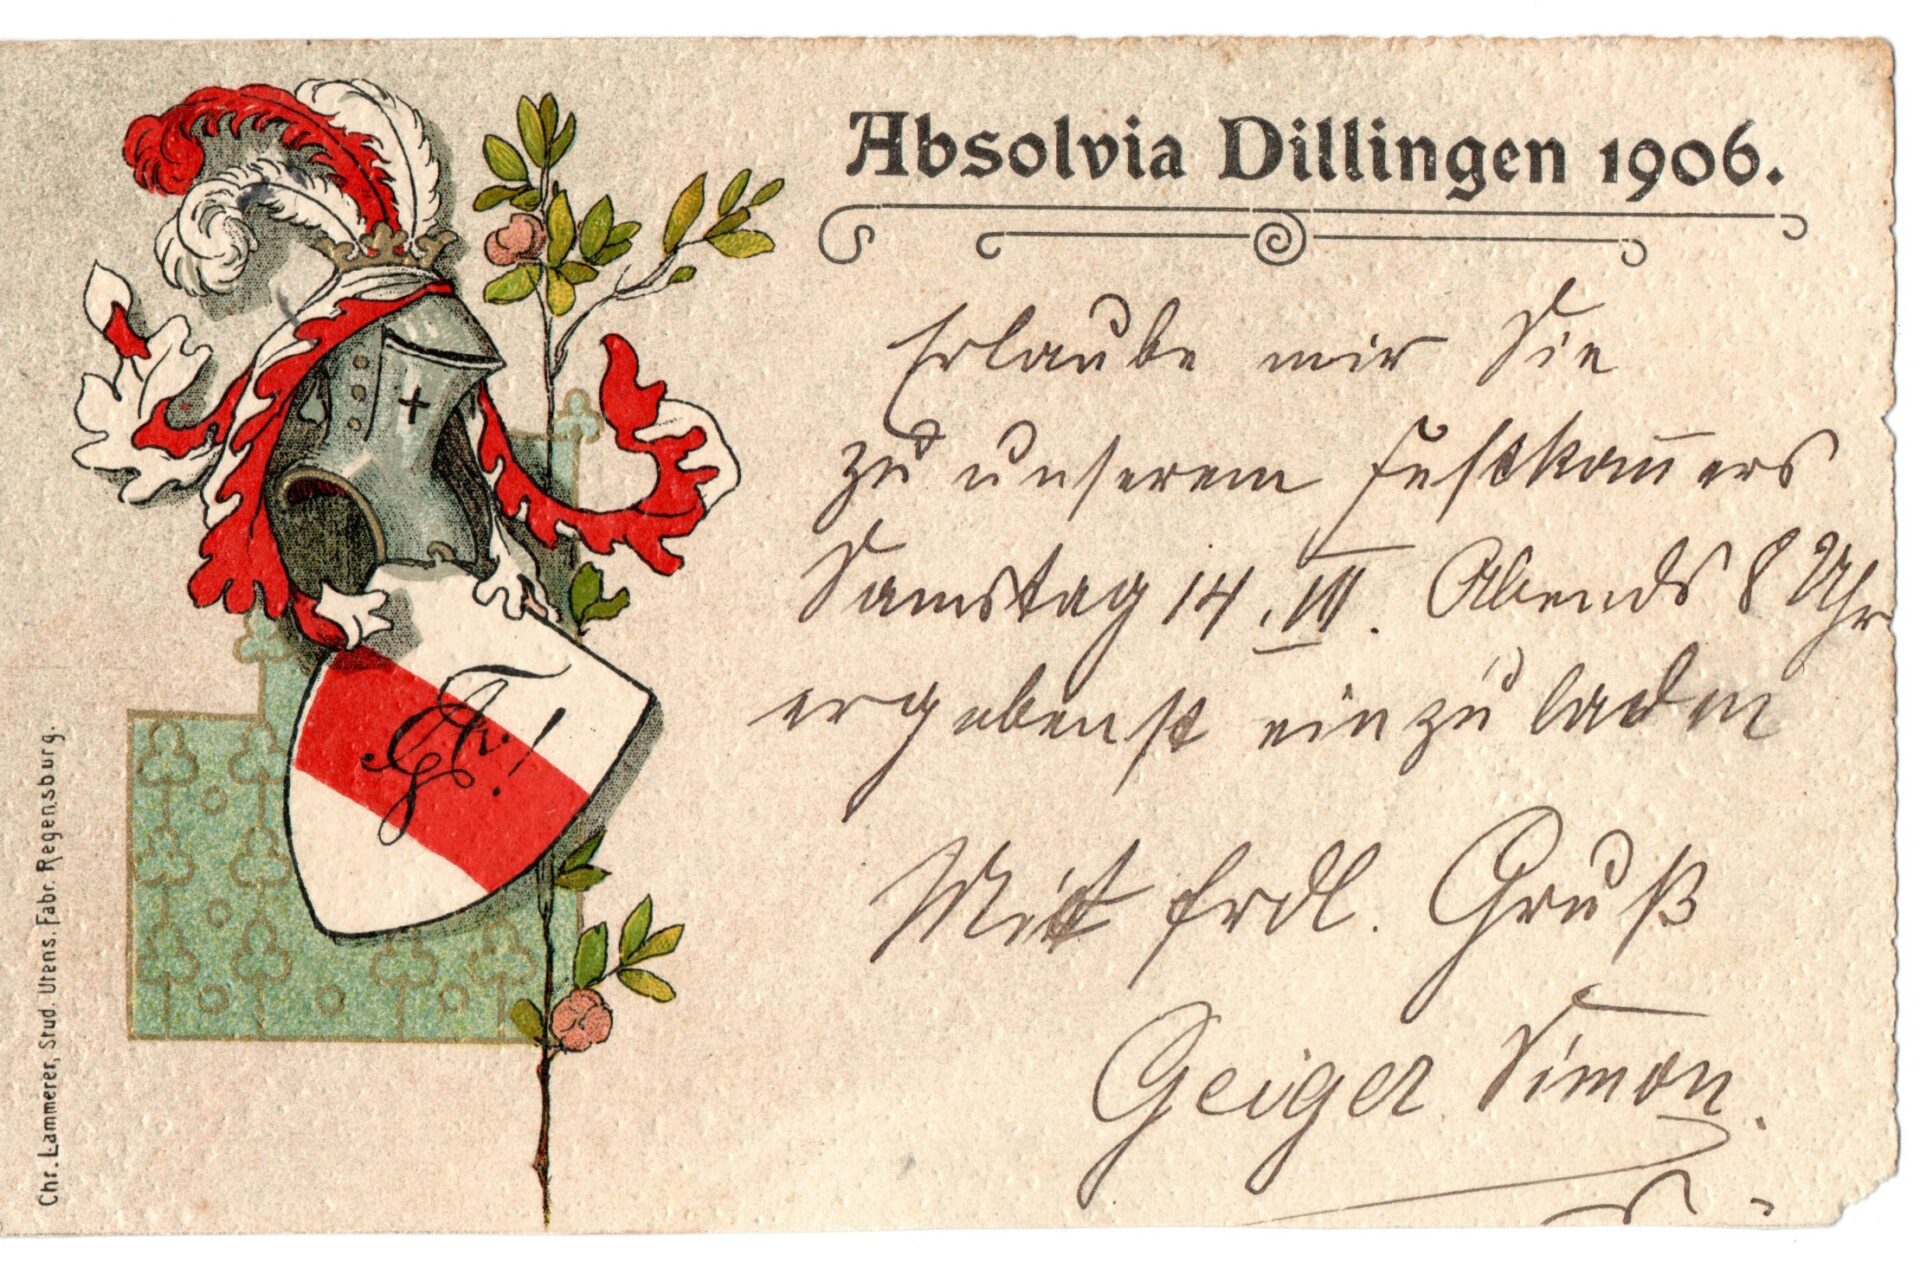 Absolvia Dillingen 1906.
Erlaube mir Sie
zu unserem Festkom̅ers
Samstag 14. VII. Abends 8 Uhr
ergebenst einzuladen
Mit frdl. Gruß
Geiger Simon.
Chr. Lammerer, Stud. Utens. Fabr. Regensburg.